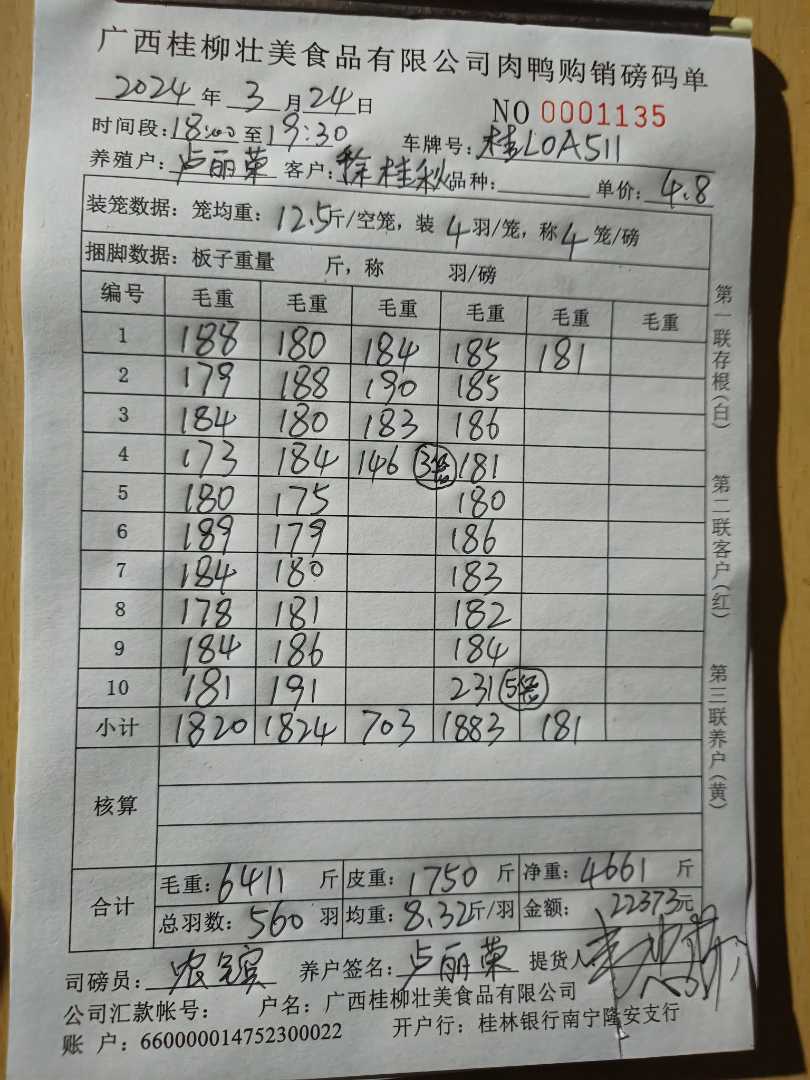 广西桂柳壮美食品有限公司肉鸭购销磅码单
2024 年 3 月 24 日 NO 0001135
时间段: 18:00 至 19:30 车牌号: 桂LOA511
养殖户: 卢丽荣 客户: 徐桂秋 品种: 单价: 4.8
装笼数据: 笼均重: 12.5 斤/空笼, 装 4 羽/笼, 称 4 笼/磅
捆脚数据: 板子重量 斤, 称 羽/磅
编号 毛重 毛重 毛重 毛重 毛重 毛重
1 188 180 184 185 181
2 179 188 190 185
3 184 180 183 186
4 173 184 146 3笼 181
5 180 175 180
6 189 179 186
7 184 180 183
8 178 181 182
9 184 186 184
10 181 191 231 5笼
小计 1820 1824 703 1883 181
核算
合计 毛重: 6411 斤 皮重: 1750 斤 净重: 4661 斤
总羽数: 560 羽 均重: 8.32 斤/羽 金额: 22373元
司磅员: 农宾 养户签名: 卢丽荣 提货人
公司汇款帐号: 户名: 广西桂柳壮美食品有限公司
账 户: 660000014752300022 开户行: 桂林银行南宁隆安支行
第一联存根(白)
第二联客户(红)
第三联养户(黄)